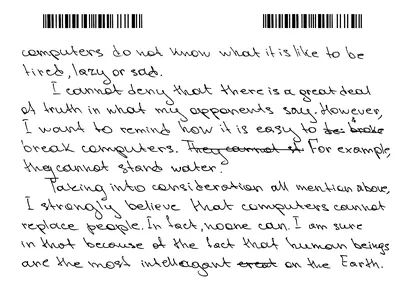 computers do not know what it is like to be
tired, lazy or sad.
I cannot deny that there is a great deal
of truth in what my opponents say. However,
I want to remind how it is easy to
break computers. They cannot st. For example,
they cannot stand water.
Taking into consideration all mention above,
I strongly believe that computers cannot
replace people. In fact, noone can. I am sure
in that because of the fact that human beings
are the most intellagant on the Earth.